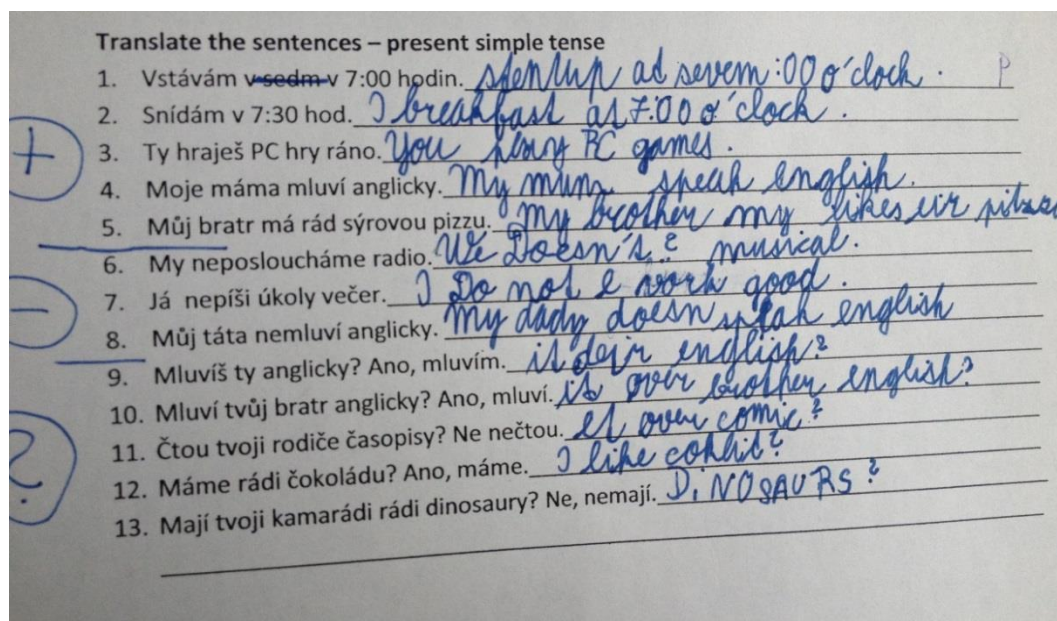 Translate the sentences – present simple tense
1. Vstávám v sedm v 7:00 hodin. ad sevem :00 o´clock . P
2. Snídám v 7:30 hod. I breakfast at 7:00 o´clock .
+ 3. Ty hraješ PC hry ráno. You PC games .
4. Moje máma mluví anglicky. My mum speak english.
5. Můj bratr má rád sýrovou pizzu. my brother my likes
6. My neposloucháme radio. We Doesn´s ? musical.
− 7. Já nepíši úkoly večer. I Do not work good .
8. Můj táta nemluví anglicky. My dady doesn speak english
9. Mluvíš ty anglicky? Ano, mluvím. english?
10. Mluví tvůj bratr anglicky? Ano, mluví. is over brother english?
? 11. Čtou tvoji rodiče časopisy? Ne nečtou. over comic?
12. Máme rádi čokoládu? Ano, máme. I like
13. Mají tvoji kamarádi rádi dinosaury? Ne, nemají. DiNOSAURS ?